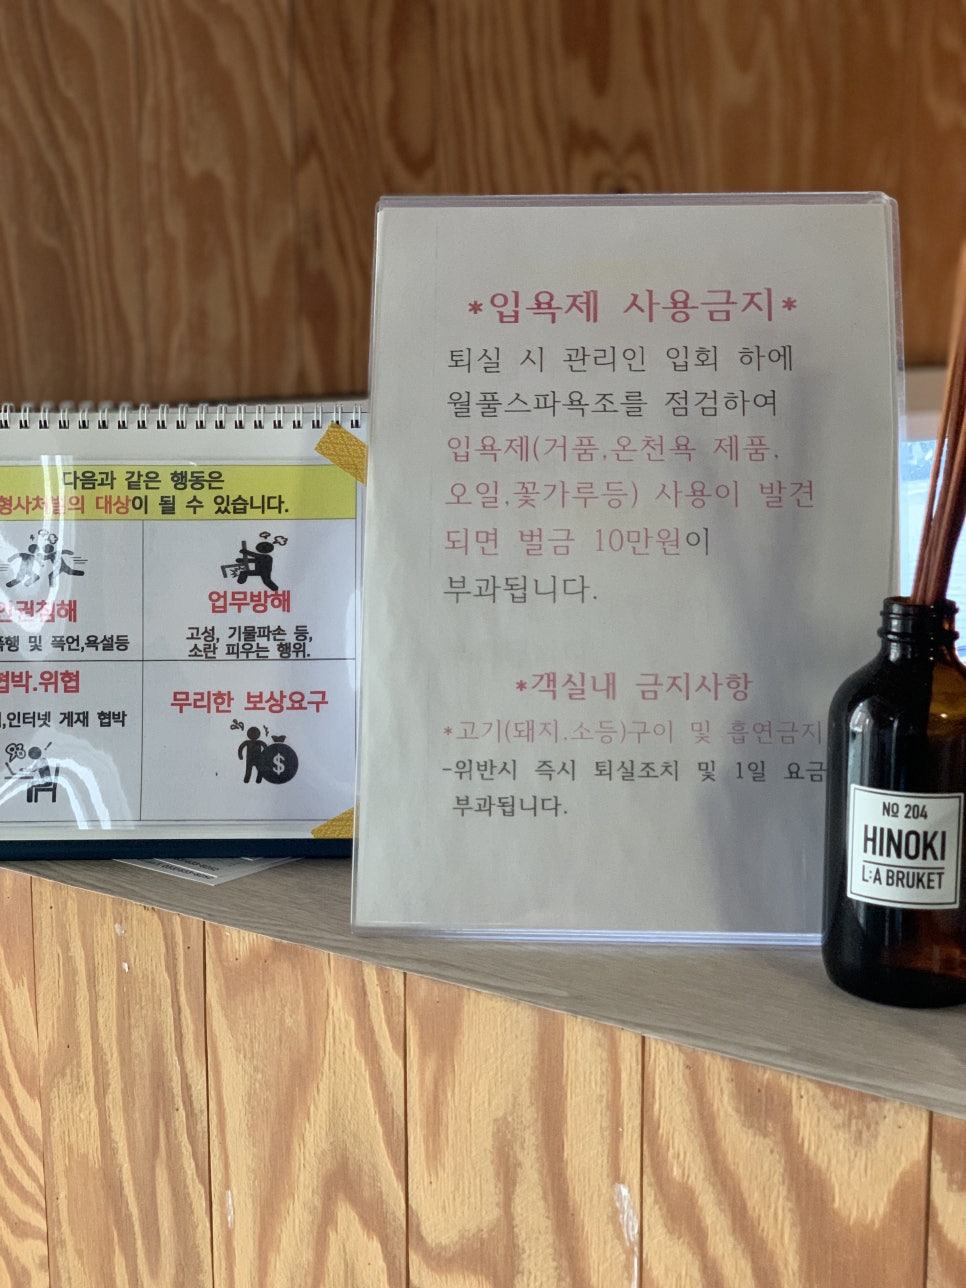 *입욕제 사용금지*
퇴실 시 관리인 입회 하에
월풀스파욕조를 점검하여
입욕제(거품,온천욕 제품,
오일,꽃가루등) 사용이 발견
되면 벌금 10만원이
부과됩니다.
*객실내 금지사항
*고기(돼지.소등)구이 및 흡연금지
-위반시 즉시 퇴실조치 및 1일 요금
부과됩니다.
다음과 같은 행동은
형사처벌의 대상이 될 수 있습니다.
인권침해
폭행 및 폭언,욕설등
업무방해
고성, 기물파손 등,
소란 피우는 행위.
협박.위협
,인터넷 게재 협박
무리한 보상요구
$
Nº 204
HINOKI
L:A BRUKET